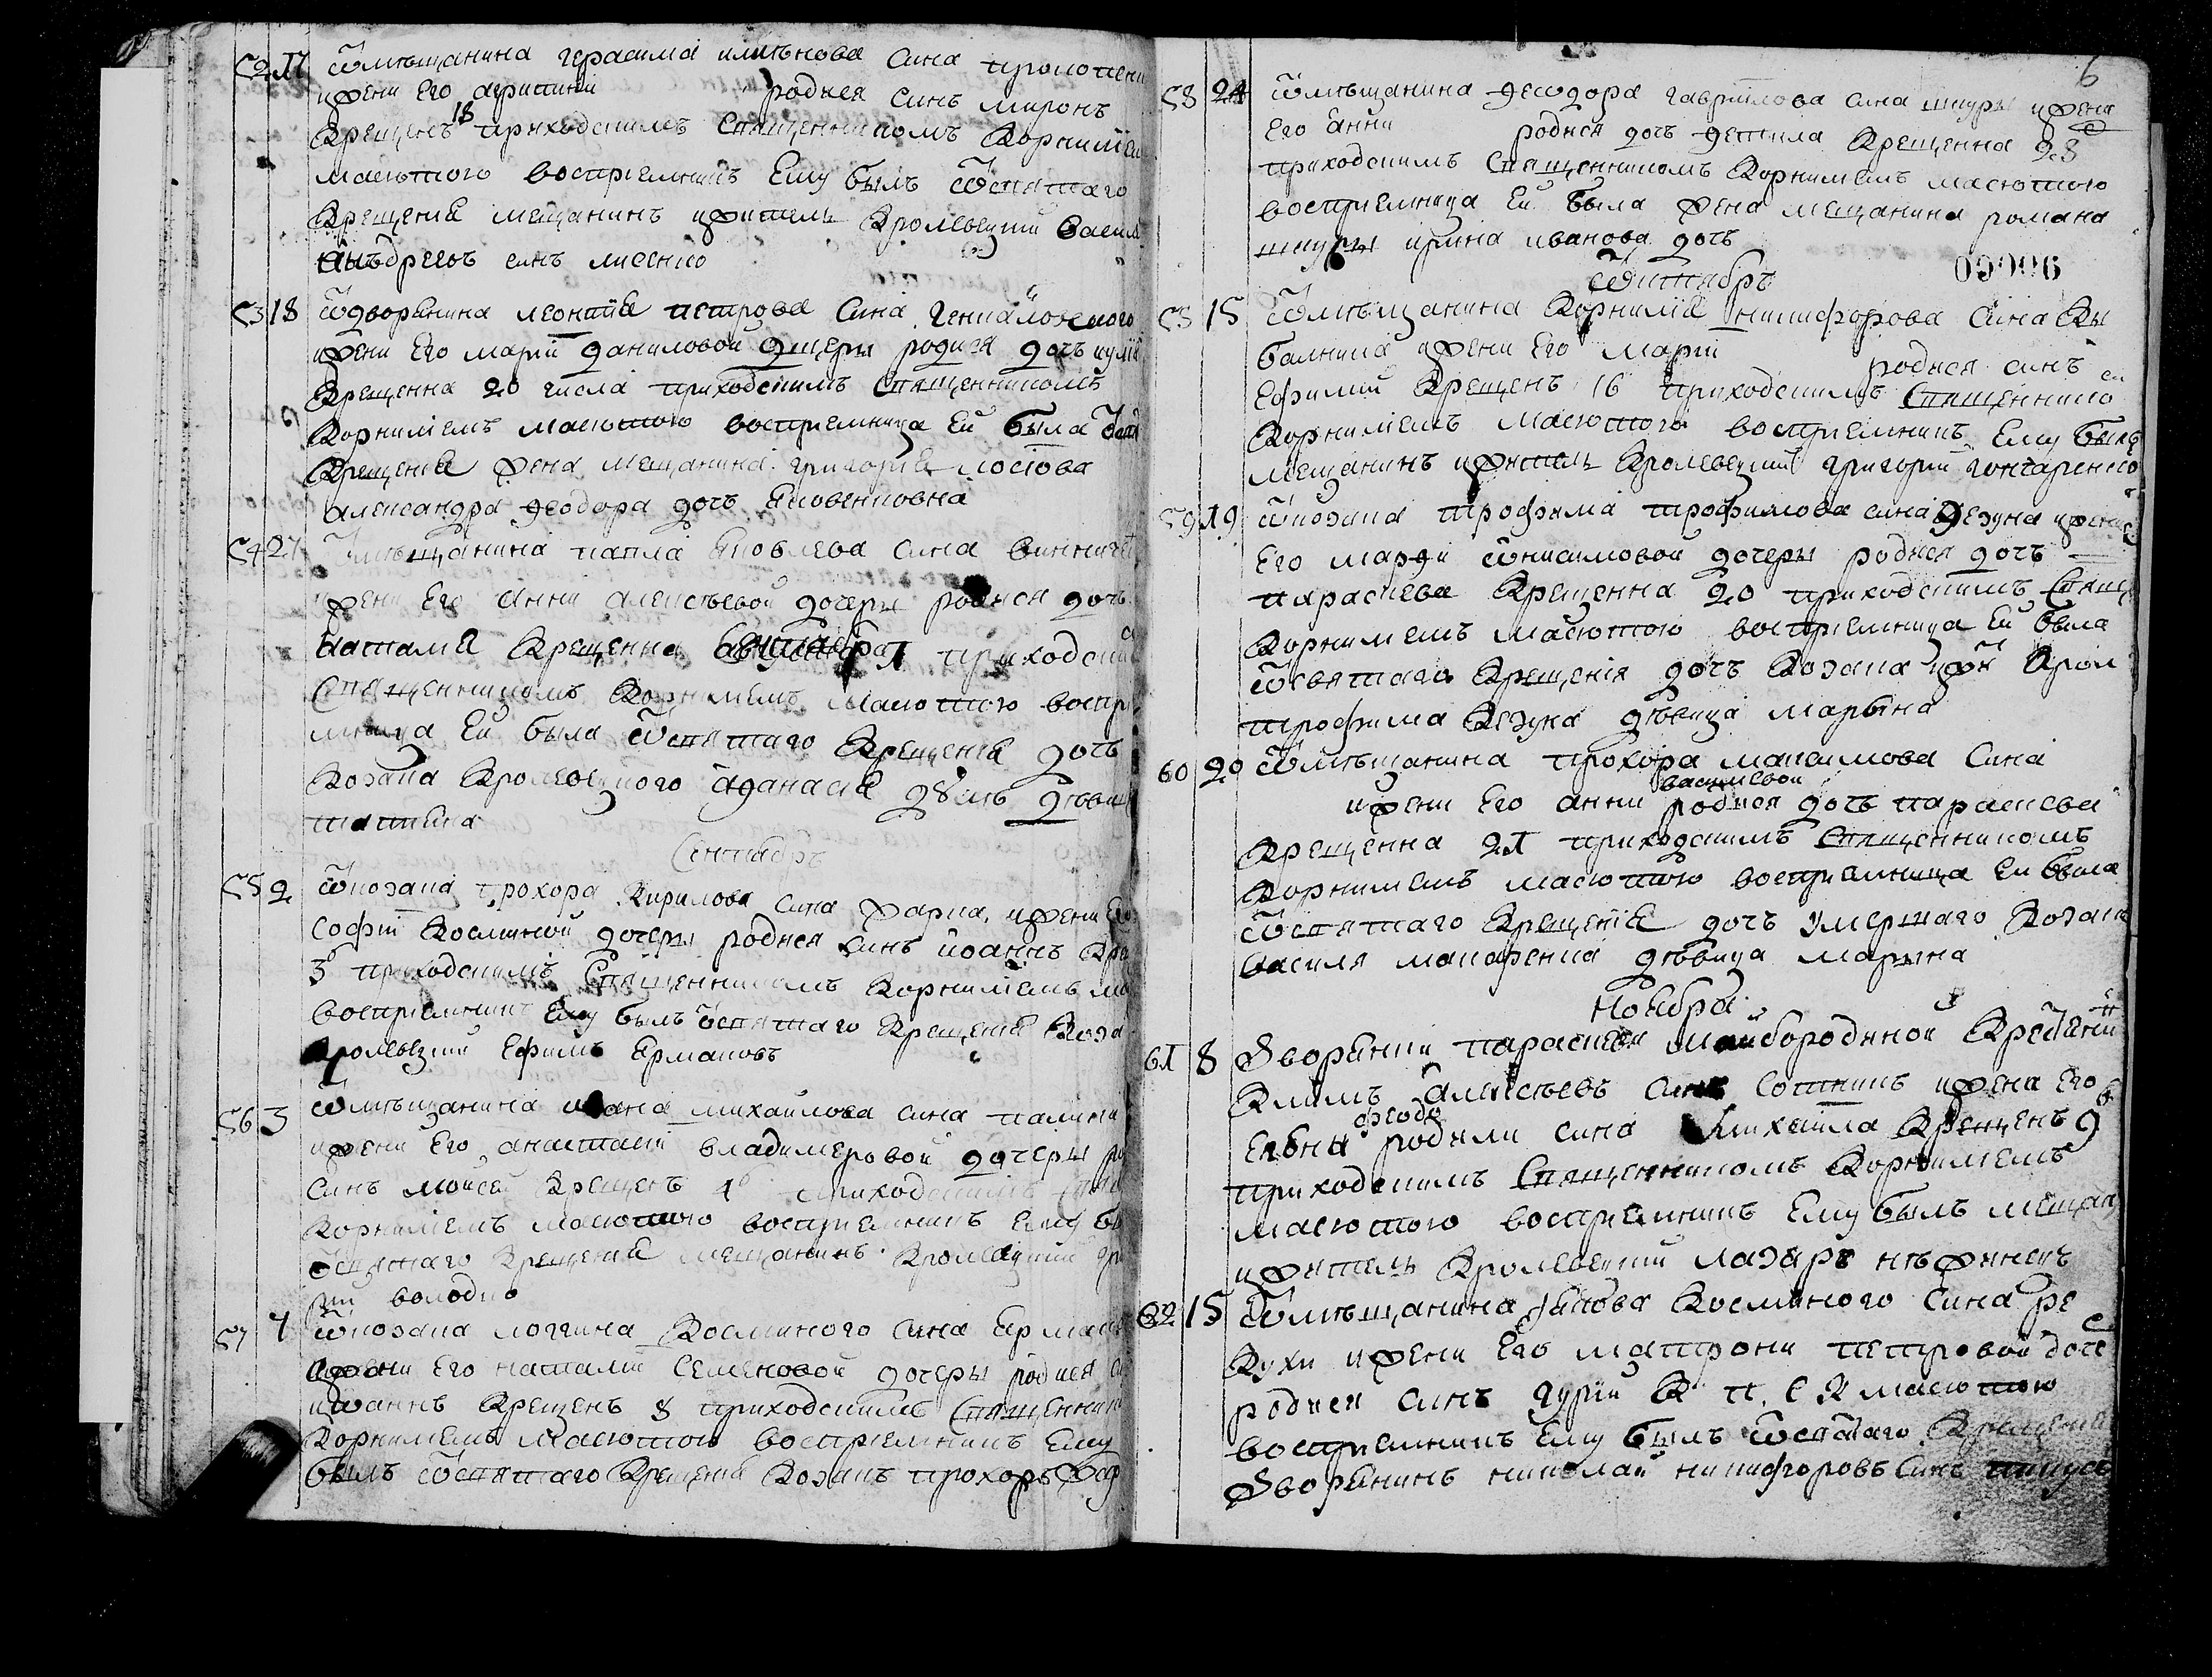 52 17 Ѿ мѣщанина герасима сина
и жени его агрипини родися синъ миронъ
крещенъ 18 приходскимъ священникомъ корнилием
масютою восприемникъ ему былъ Ѿ святаго
крещенія мещанинъ и житель кролевецкий васил
андреевъ синъ лисенко
53 18 Ѿ дворянина леонтия петрова сина
жени его марии даниловой дщеры родися дочъ иулия
крещенна 20 числа приходскимъ священникомъ
корнилиемъ масютою восприемница ей была Ѿ свя
крещения жена мещанина григория
александра феодора дочъ яковенковна
54 27 Ѿ мѣщанина павла яковлева сина
и жени его анни алексѣевой дочеры родися дочъ
наталия крещенна 1 приходски
священникомъ корнилиемъ масютою воспри
мница ей была Ѿ святаго крещения дочъ
козака кролевецкого афанасия девица
татияна
Сентябрь
55 2 Ѿ козака прохора кирилова сина жарка и жени его
софии косминой дочеры родися синъ иоаннъ кре
3 приходскимъ священникомъ корнилиемъ ма
восприемникъ ему былъ Ѿ святаго крещения коза
кролевецкий ефимъ ермаковъ
56 3 Ѿ мѣщанина ивана михаилова сина
и жени его анастасии владимеровой дочеры ро
синъ моисей крещенъ 4 приходскимъ свя
корнилиемъ масютою восприемникъ ему бы
Ѿ святаго крещения мещанинъ кролевецкий гри
рий володко
57 7 Ѿ козака логгина косминого сина ермака
жени его наталии семеновой дочеры родися си
иоаннъ крещенъ 8 приходскимъ священнико
корнилиемъ масютою восприемникъ ему
былъ Ѿ святаго крещения козакъ прохоръ
6
58 24 Ѿ мѣщанина феодора гаврилова сина шкуры и жени
его анни родися дочъ фекила крещенна 28
приходскимъ священникомъ корнилиемъ масютою
восприемница ей была жена мещанина романа
шкуры ирина иванова дочъ
Октябрь
09996
58 15 Ѿ мѣщанина корнилия никифорова сина ки
балника и жени его марии родися синъ
ефимий крещенъ 16 приходскимъ священнико
корнилиемъ масютою восприемникъ ему былъ
мещанинъ и житель кролевецкий григорий гончаренко
59 19 Ѿ козака трофима трофимова сина и жени
его марфи дочеры родися дочъ
параскева крещенна 20 приходскимъ свящ
корнилиемъ масютою восприемница ей была
Ѿ святаго крещения дочъ козака и жи крол
трофима кезуна дѣвица марьяна
60 20 Ѿ мѣщанина прохора максимова сина
и жени его анни василевой родися дочъ параскева
крещенна 21 приходскимъ священникомъ
корнилиемъ масютою восприемница ей была
Ѿ святаго крещения дочъ умершаго козака
василя макаренка дѣвица марьяна
Ноября
61 8 Дворянки параскеви майбородиной
климъ алексѣевъ синъ сотникъ и жена его
феодо родили сина михаила крещенъ 9
приходскимъ священникомъ корнилиемъ
масютою восприемникъ ему былъ мещан
и житель кролевецкий лазаръ нѣжинецъ
62 15 Ѿ мѣщанина якова косминого сина ре
кухи и жени его матрони петровой доче
родися синъ гурий к п с к масютою
восприемникъ ему былъ Ѿ святаго крещения
дворянинъ николай никифоровъ синъ